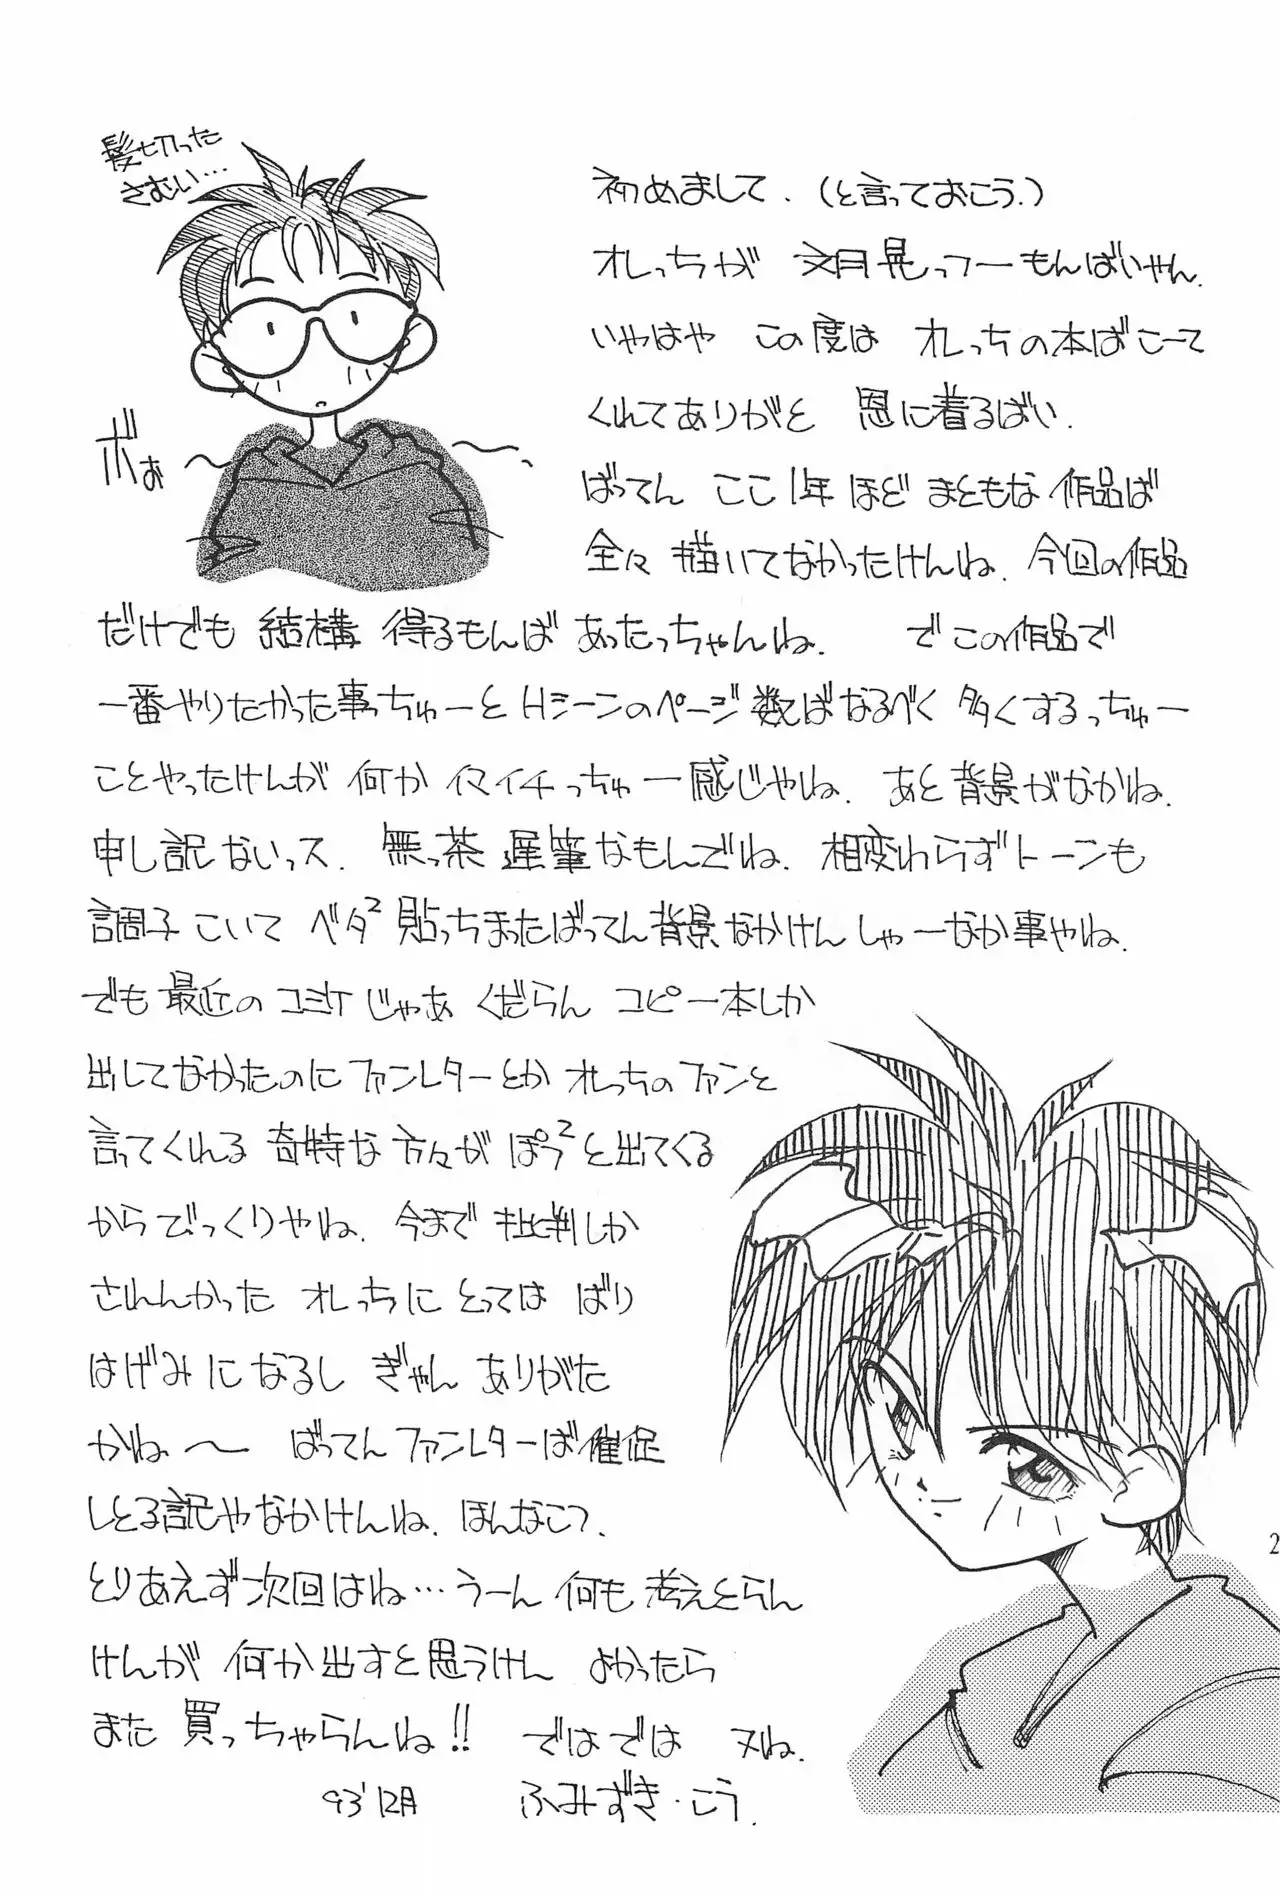 髪切った
さむい…
ボぉ
初めまして.(と言っておこう.)
オレっちが 文月晃っつーもんばいやん.
いやはや この度は オレっちの本ばこーて
くれてありがと 恩に着るばい.
ばってん ここ1年ほど まともな作品ば
全々描いてなかったけんね. 今回の作品
だけでも 結構 得るもんば あったっちゃんね. でこの作品で
一番やりたかった事っちゅーと Hシーンのページ数ばなるべく 多くするっちゅー
ことやったけんが 何か イマイチっちゅー感じやね. あと背景がなかね.
申し訳ないっス. 無っ茶 遅筆なもんでね. 相変わらずトーンも
調子こいて ベタ² 貼っちまったばってん 背景なかけん しゃーなか事やね.
でも 最近の コミケじゃあ くだらん コピー本しか
出してなかったのに ファンレターとか オレっちのファンと
言ってくれる 奇特な方々が ぽつ²と出てくる
からびっくりやね. 今まで 批判しか
されんかった オレっちに とっては ばり
はげみになるし ぎゃん ありがた
かね〜 ばってんファンレターば催促
しとる訳やなかけんね. ほんなこつ.
とりあえず次回はね…うーん 何も 考えとらん
けんが 何か出すと思うけん よかったら
また 買っちゃらんね!! ではでは ヌね.
93'12月 ふみずき・こう.
2